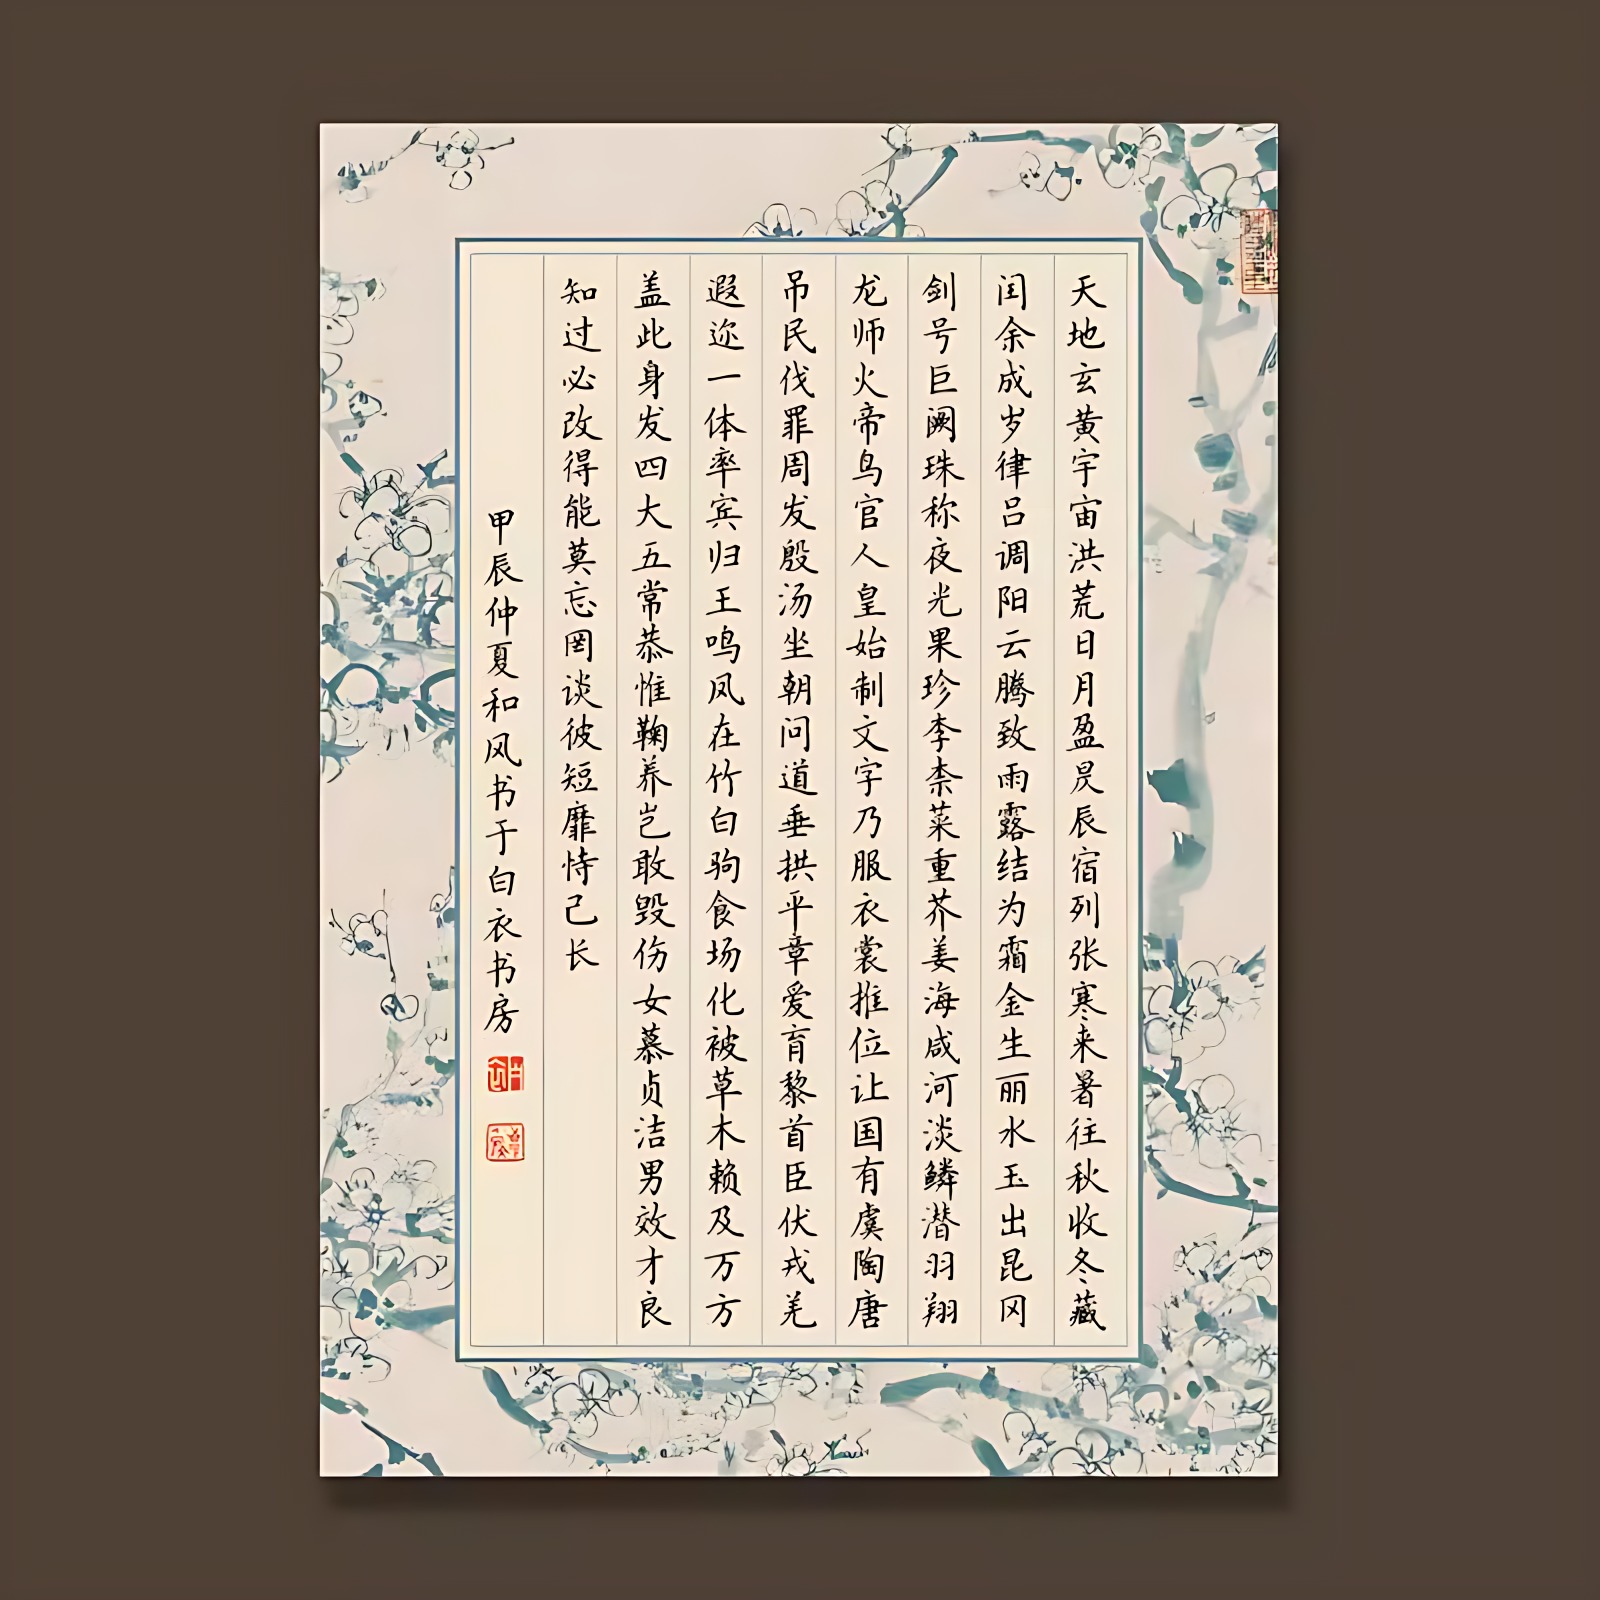 天地玄黄宇宙洪荒日月盈昃辰宿列张寒来暑往秋收冬藏
闰余成岁律吕调阳云腾致雨露结为霜金生丽水玉出昆冈
剑号巨阙珠称夜光果珍李柰菜重芥姜海咸河淡鳞潜羽翔
龙师火帝鸟官人皇始制文字乃服衣裳推位让国有虞陶唐
吊民伐罪周发殷汤坐朝问道垂拱平章爱育黎首臣伏戎羌
遐迩一体率宾归王鸣凤在竹白驹食场化被草木赖及万方
盖此身发四大五常恭惟鞠养岂敢毁伤女慕贞洁男效才良
知过必改得能莫忘罔谈彼短靡恃己长
甲辰仲夏和风书于白衣书房